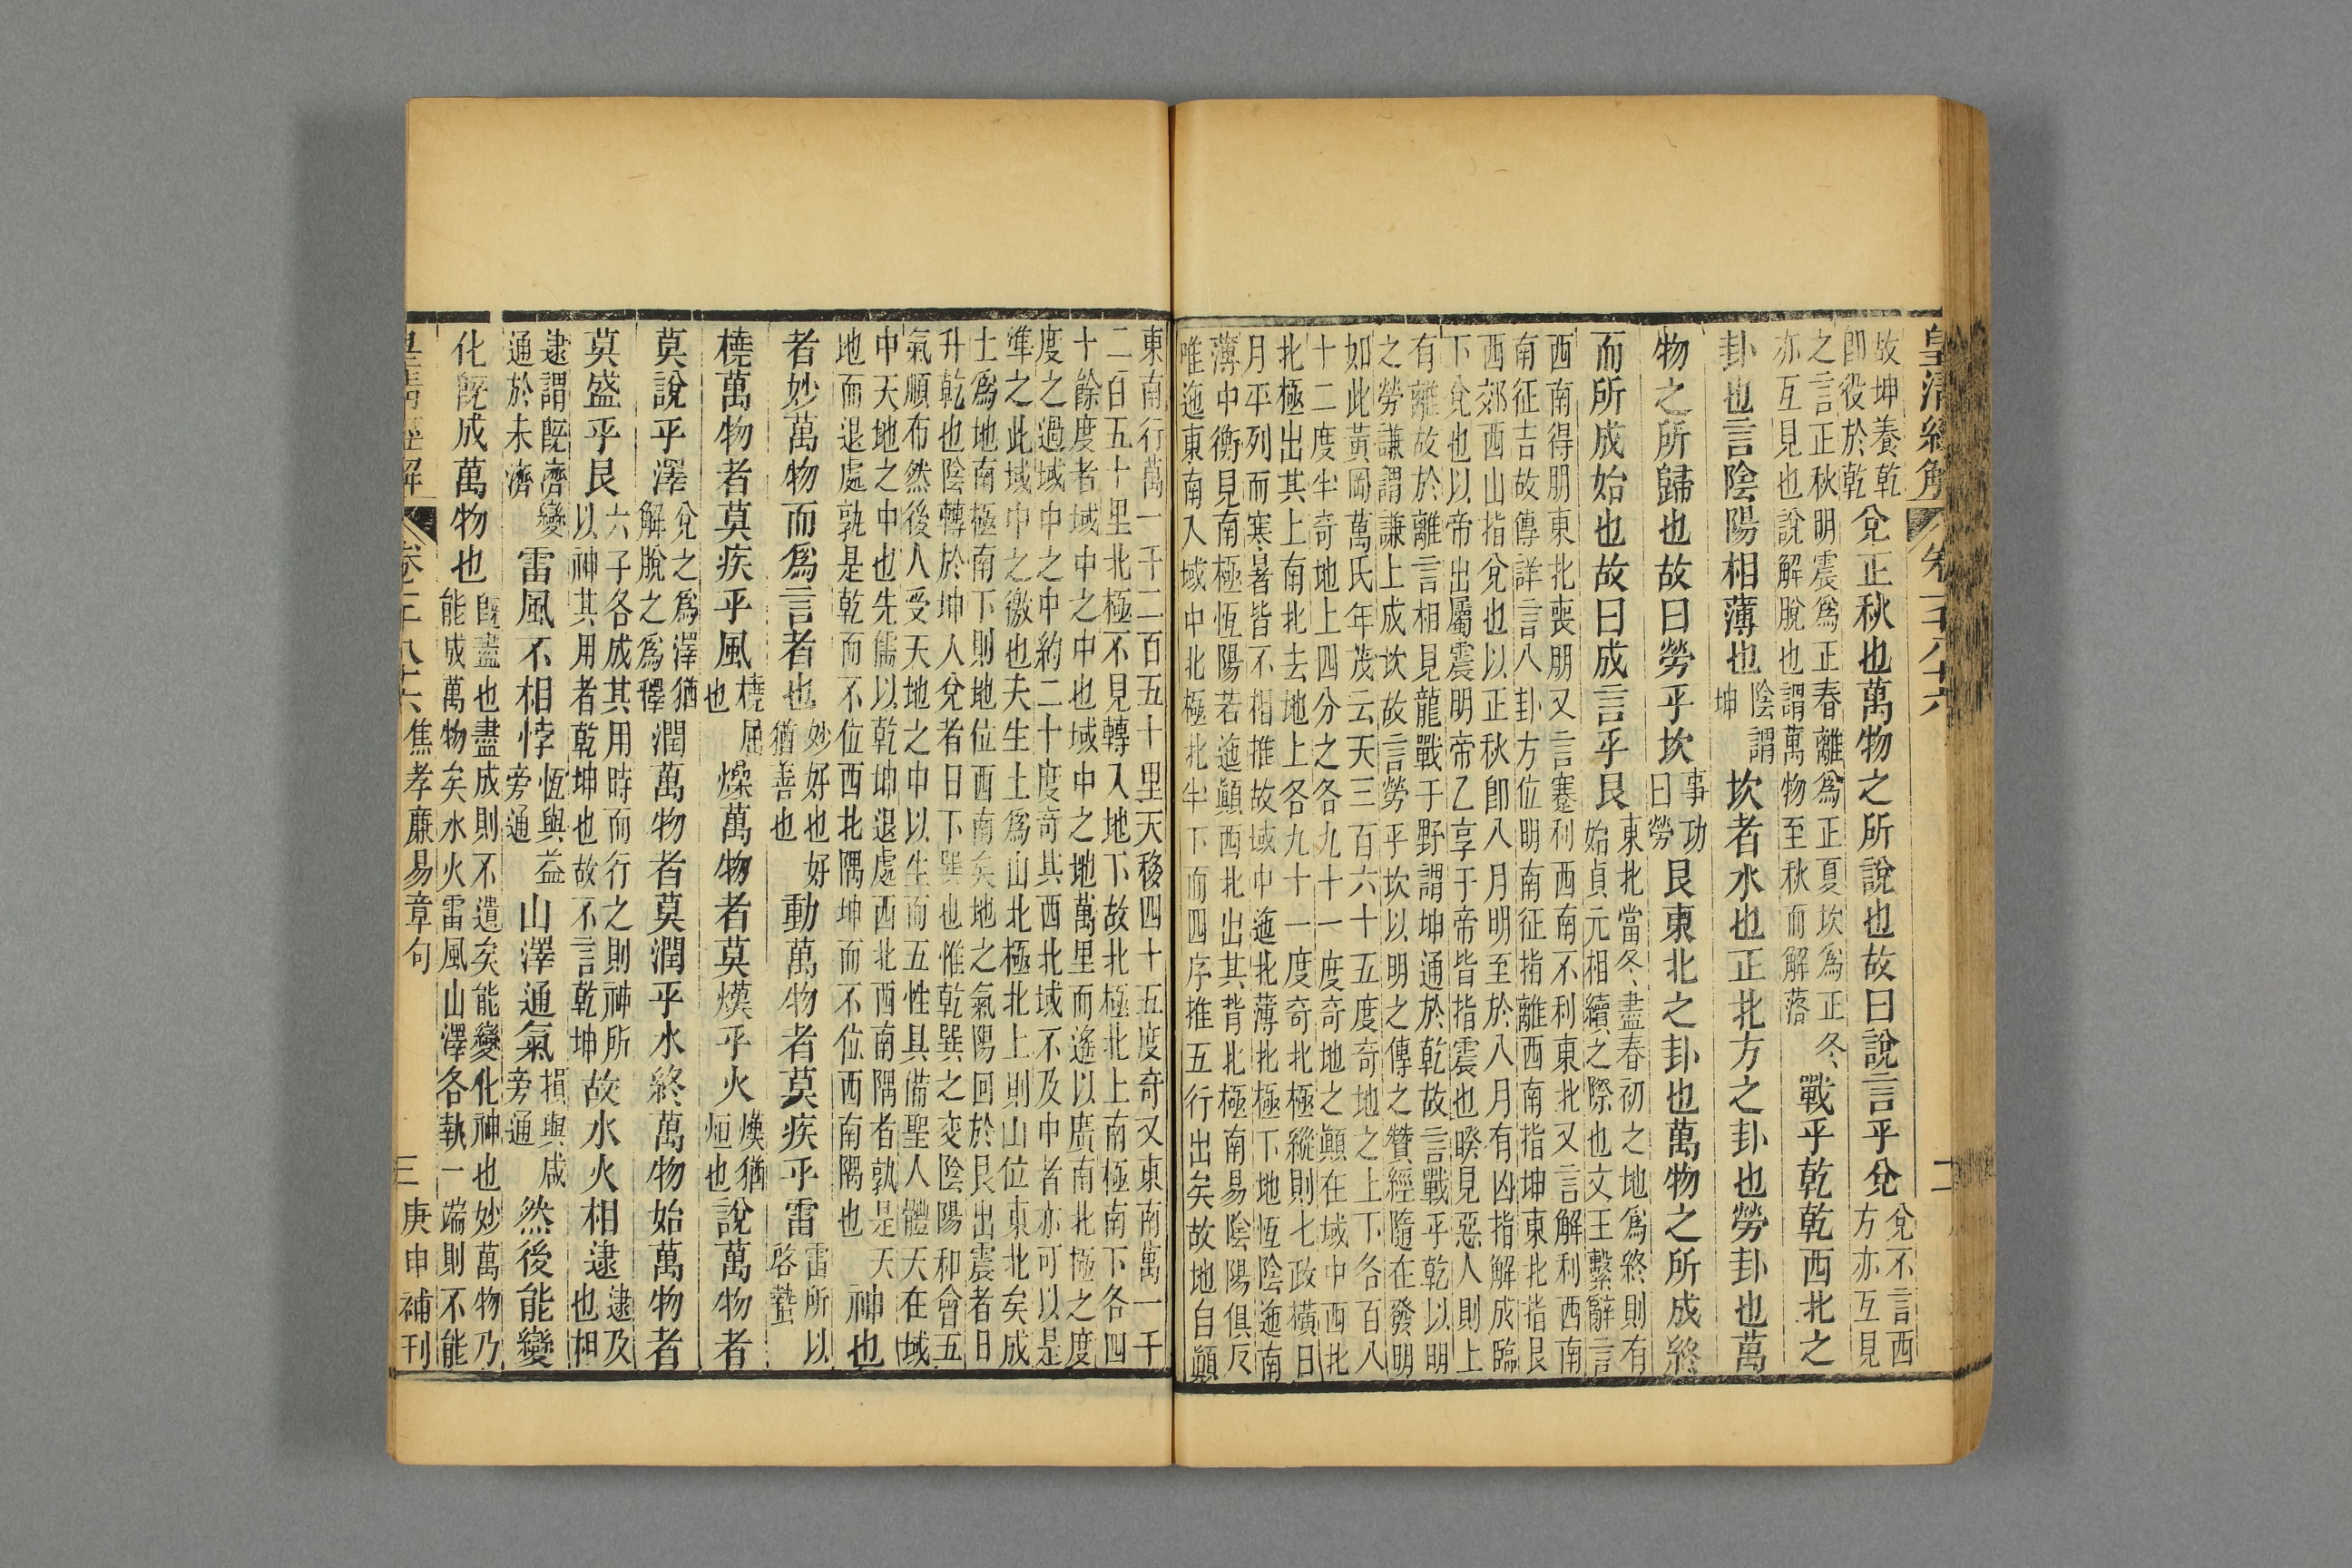 皇清經解 卷一千八十六 二
故坤養乾
即役於乾
兌正秋也萬物之所說也故曰說言乎兌
兌不言西
方亦互見
之言正秋明震爲正春離爲正夏坎爲正冬
亦互見也說解脫也謂萬物至秋而解落
戰乎乾乾西北之
卦也言陰陽相薄也
陰謂
坤
坎者水也正北方之卦也勞卦也萬
物之所歸也故曰勞乎坎
事功
曰勞
艮東北之卦也萬物之所成終
而所成始也故曰成言乎艮
東北當冬盡春初之地爲終則有
始貞元相續之際也文王繫辭言
西南得朋東北喪朋又言蹇利西南不利東北又言解利西南
南征吉故傳詳言八卦方位明南征指離西南指坤東北指艮
西郊西山指兌也以正秋即八月明至於八月有凶指解成臨
下兌也以帝出屬震明帝乙享于帝皆指震也睽見惡人則上
有離故於離言相見龍戰于野謂坤通於乾故言戰乎乾以明
之勞謙謂謙上成坎故言勞乎坎以明之傳之贊經隨在發明
如此黃岡萬氏年茂云天三百六十五度奇地之上下各百八
十二度半奇地上四分之各九十一度奇地之顛在域中西北
北極出其上南北去地上各九十一度奇北極縱則七政橫日
月平列而寒暑皆不相推故域中迤北薄北極下地恆陰迤南
薄中衡見南極恆陽若迤顛西北出其背北極南易陰陽俱反
唯迤東南入域中北極北半下而四序推五行出矣故地自顛
東南行萬一千二百五十里天移四十五度奇又東南萬一千
二百五十里北極不見轉入地下故北極北上南極南下各四
十餘度者域中之中也域中之地萬里而遙以廣南北極之度
度之過域中之中約二十度奇其西北域不及中者亦可以是
準之此域中之徼也夫生土爲山北極北上則山位東北矣成
土爲地南極南下則地位西南矣地之氣陽回於艮出震者日
升乾也陰轉於坤人兌者日下巽也惟乾巽之交陰陽和會五
氣順布然後人受天地之中以生而五性具備聖人體天在域
中天地之中也先儒以乾坤退處西北西南隅者孰是天
地而退處孰是乾而不位西北隅坤而不位西南隅也
神也
者妙萬物而爲言者也
妙好也好
猶善也
動萬物者莫疾乎雷
雷所以
啓蟄
橈萬物者莫疾乎風
橈屈
也
燥萬物者莫熯乎火
熯猶
烜也
說萬物者
莫說乎澤
兌之爲澤猶
解脫之爲釋
潤萬物者莫潤乎水終萬物始萬物者
莫盛乎艮
六子各成其用時而行之則神所
以神其用者乾坤也故不言乾坤
故水火相逮
逮及
也相
逮謂旣濟變
通於未濟
雷風不相悖
恆與益
旁通
山澤通氣
損與咸
旁通
然後能變
化旣成萬物也
旣盡也盡成則不遺矣能變化神也妙萬物乃
能成萬物矣水火雷風山澤各執一端則不能
皇清經解 卷一千八十六 焦孝廉易章句 三 庚申補刊